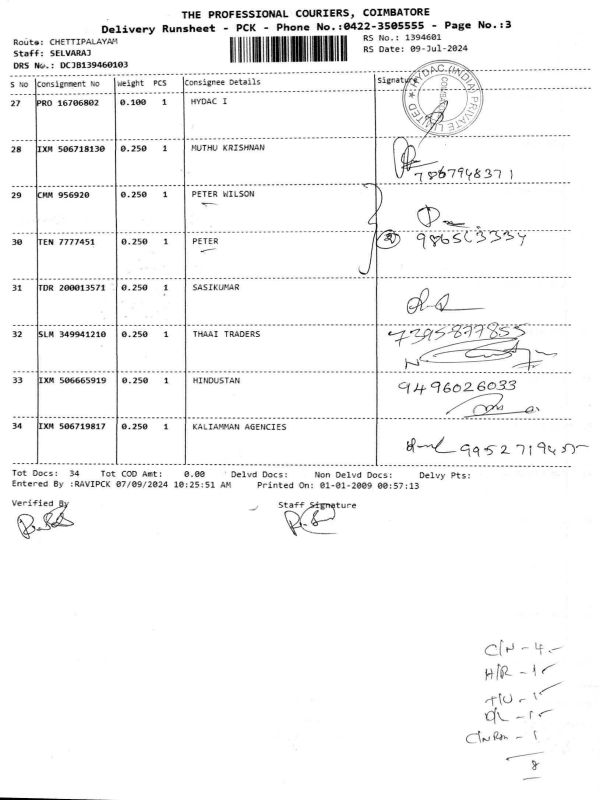 THE PROFESSIONAL COURIERS, COIMBATORE
Delivery Runsheet - PCK - Phone No.:0422-3505555 - Page No.:3
Route: CHETTIPALAYAM RS No.: 1394601
Staff: SELVARAJ RS Date: 09-Jul-2024
DRS No.: DCJB139460103
S No Consignment No Weight PCS Consignee Details Signature
27 PRO 16706802 0.100 1 HYDAC I
HYDAC (INDIA) PRIVATE LIMITED
28 IXM 506718130 0.250 1 MUTHU KRISHNAN
7867948371
29 CMM 956920 0.250 1 PETER WILSON
30 TEN 7777451 0.250 1 PETER
31 TDR 200013571 0.250 1 SASIKUMAR
32 SLM 349941210 0.250 1 THAAI TRADERS
7395877855
33 IXM 506665919 0.250 1 HINDUSTAN
9496026033
34 IXM 506719817 0.250 1 KALIAMMAN AGENCIES
Tot Docs: 34 Tot COD Amt: 0.00 Delvd Docs: Non Delvd Docs: Delvy Pts:
Entered By :RAVIPCK 07/09/2024 10:25:51 AM Printed On: 01-01-2009 00:57:13
Verified By Staff Signature
C/N - 4
H/R - 1
T/U - 1
D/L - 1
8